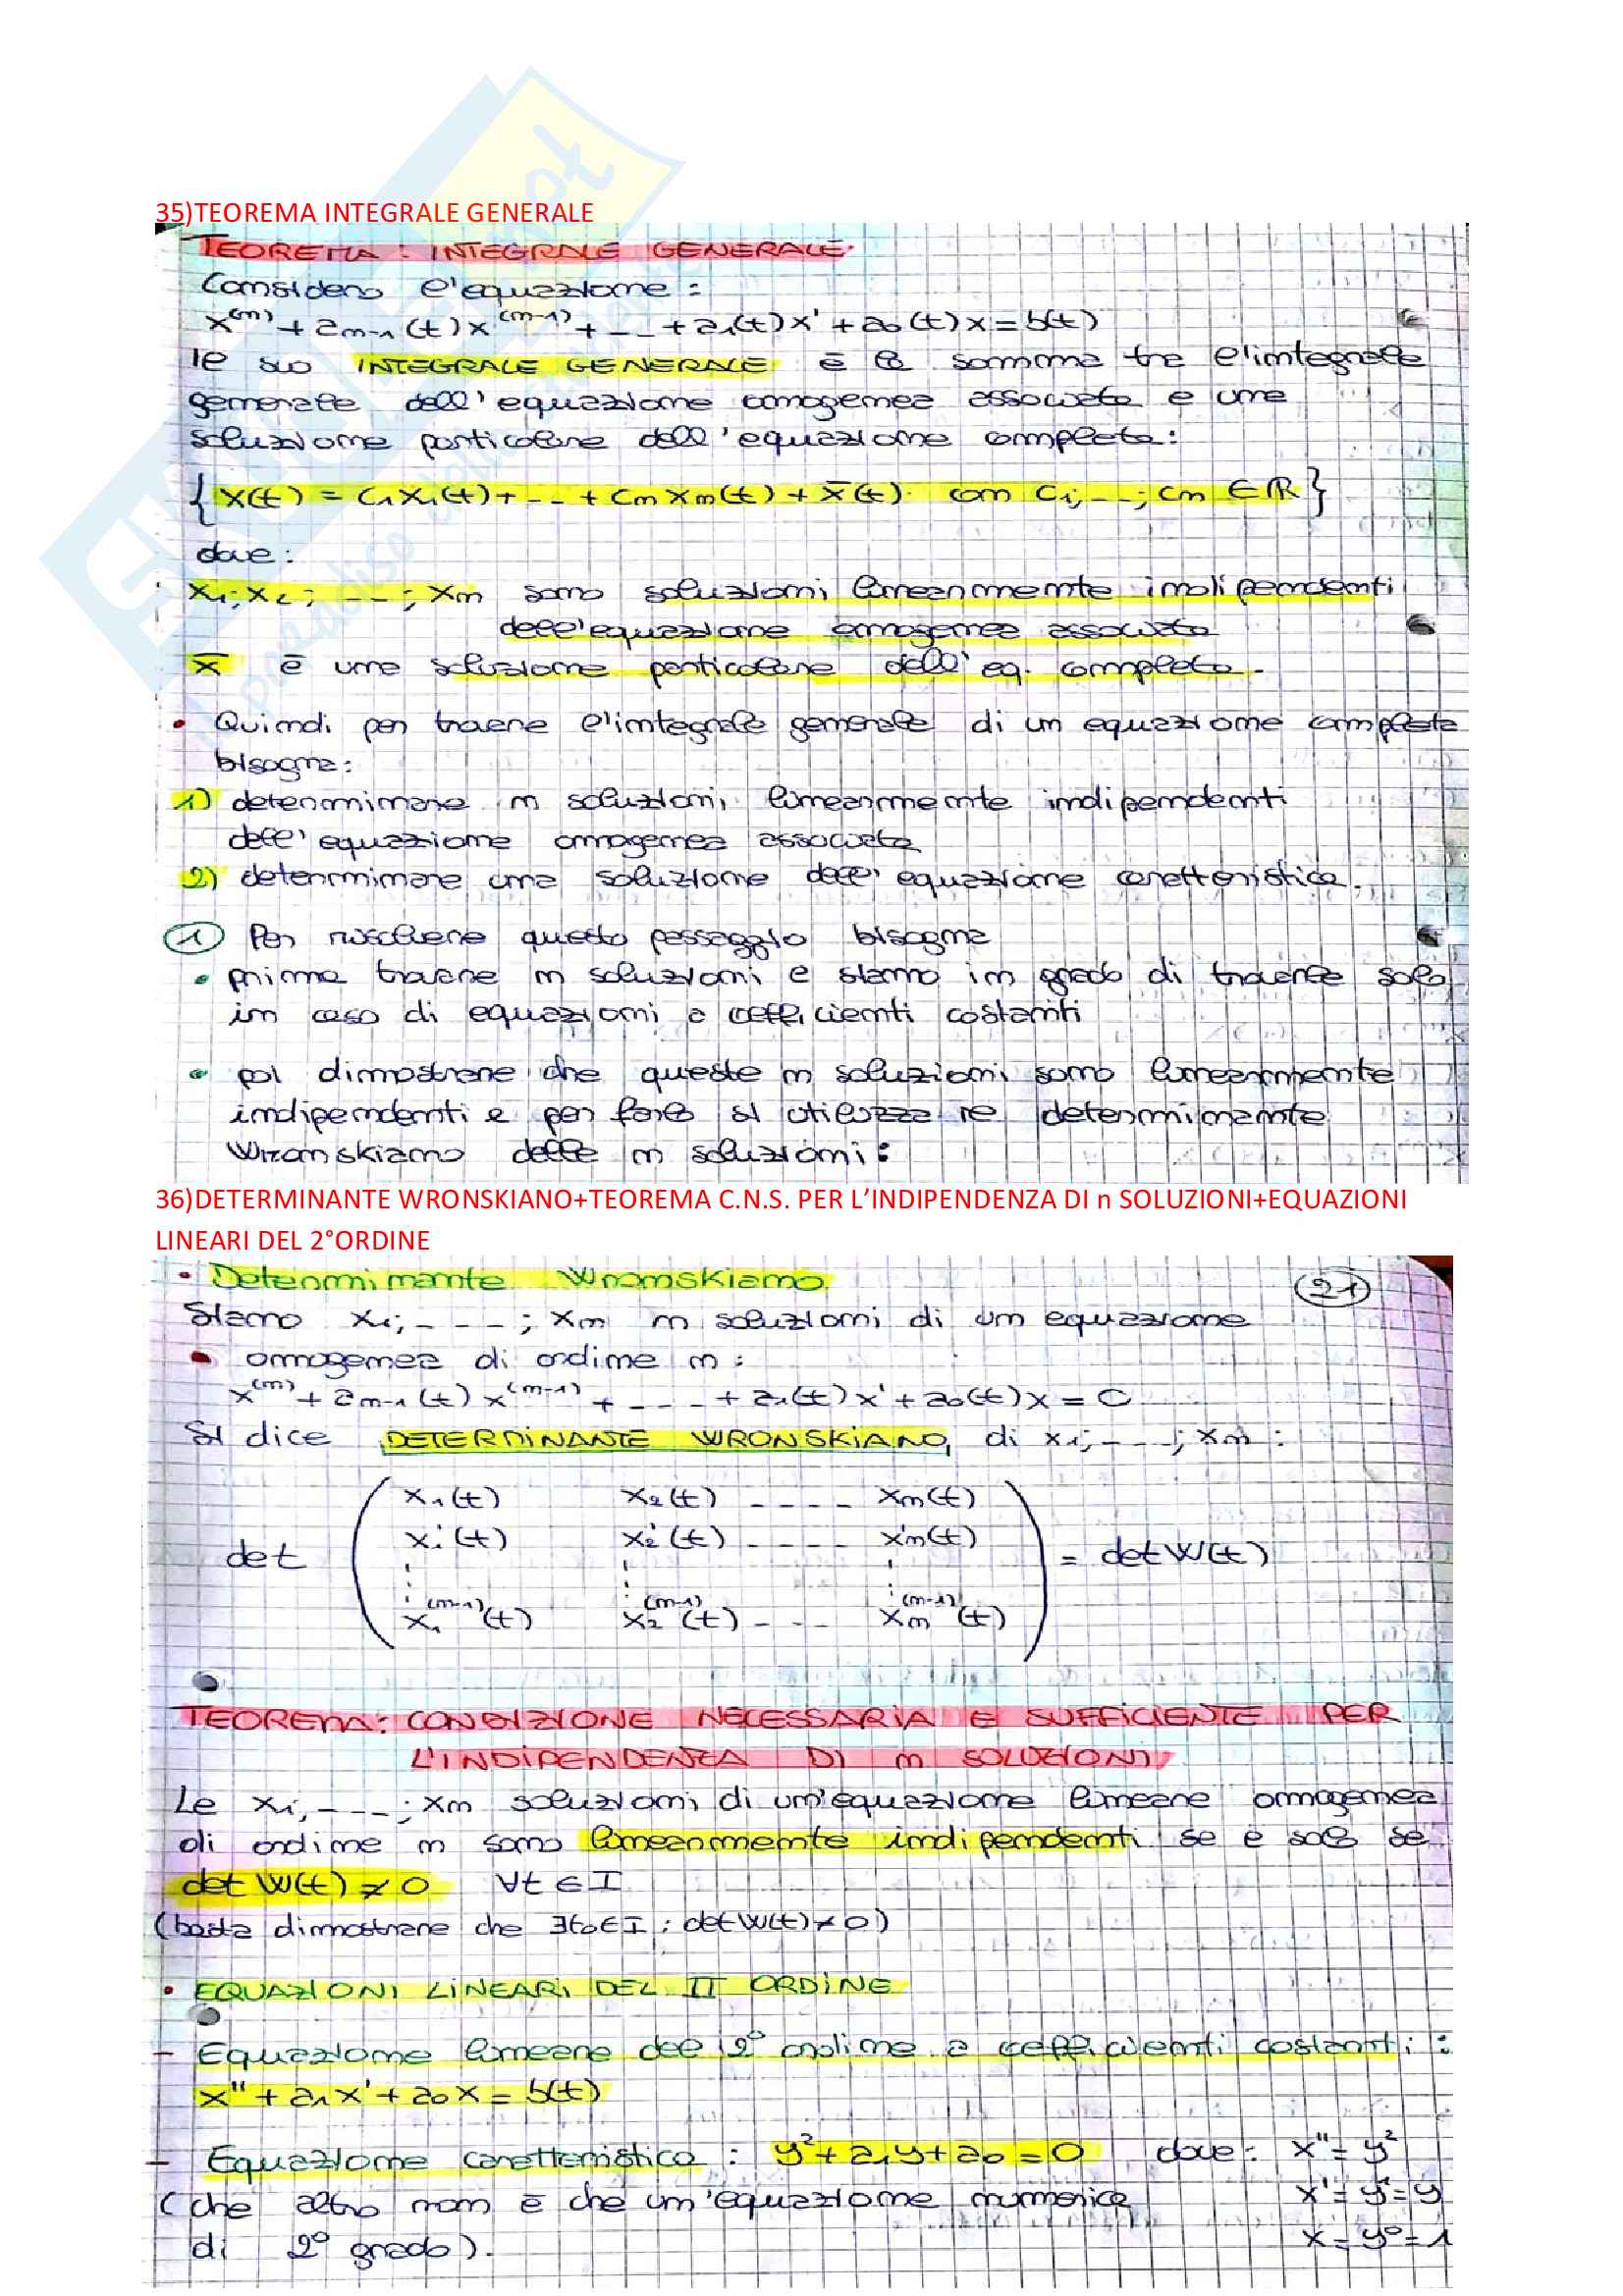 35)TEOREMA INTEGRALE GENERALE
TEOREMA : INTEGRALE GENERALE.
Considero l'equazione :
x⁽ⁿ⁾ + aₙ₋₁(t)x⁽ⁿ⁻¹⁾ + --- + a₁(t)x' + a₀(t)x = b(t)
Il suo INTEGRALE GENERALE è la somma tra l'integrale
generale dell'equazione omogenea associata e una
soluzione particolare dell'equazione completa:
{x(t) = c₁x₁(t) + --- + cₙxₙ(t) + x̄(t). con c₁; ---; cₙ ∈ ℝ}
dove:
x₁; x₂; ---; xₙ sono soluzioni linearmente indipendenti
dell'equazione omogenea associata
x̄ è una soluzione particolare dell'eq. completa.
• Quindi per trovare l'integrale generale di un equazione completa
bisogna:
1) determinare n soluzioni linearmente indipendenti
dell'equazione omogenea associata
2) determinare una soluzione dell'equazione caratteristica.
① Per risolvere questo passaggio bisogna
• prima trovare n soluzioni e siamo in grado di trovarle solo
in caso di equazioni a coefficienti costanti
• poi dimostrare che queste n soluzioni sono linearmente
indipendenti e per farlo si utilizza il determinante
Wronskiano delle n soluzioni:
36)DETERMINANTE WRONSKIANO+TEOREMA C.N.S. PER L'INDIPENDENZA DI n SOLUZIONI+EQUAZIONI
LINEARI DEL 2°ORDINE
• Determinante Wronskiano
21
Siano x₁; ---; xₙ n soluzioni di un equazione
• omogenea di ordine n :
x⁽ⁿ⁾ + aₙ₋₁(t)x⁽ⁿ⁻¹⁾ + ---- + a₁(t)x' + a₀(t)x = 0
Si dice DETERMINANTE WRONSKIANO di x₁; ---; xₙ :
x₁(t) x₂(t) ---- xₙ(t)
x₁'(t) x₂'(t) ---- xₙ'(t)
det = det W(t)
x₁⁽ⁿ⁻¹⁾(t) x₂⁽ⁿ⁻¹⁾(t) --- xₙ⁽ⁿ⁻¹⁾(t)
TEOREMA: CONDIZIONE NECESSARIA E SUFFICIENTE PER
L'INDIPENDENZA DI n SOLUZIONI
Le x₁; ---; xₙ soluzioni di un'equazione lineare omogenea
di ordine n sono linearmente indipendenti se e solo se
det W(t) ≠ 0 ∀t ∈ I
(basta dimostrare che ∃t₀∈I : det W(t) ≠ 0)
• EQUAZIONI LINEARI DEL II ORDINE
- Equazione lineare del 2° ordine a coefficienti costanti :
x'' + a₁x' + a₀x = b(t)
- Equazione caratteristica : y² + a₁y + a₀ = 0 dove: x'' = y²
(che altro non è che un'equazione numerica x' = y' = y
di 2° grado). x = y⁰ = 1